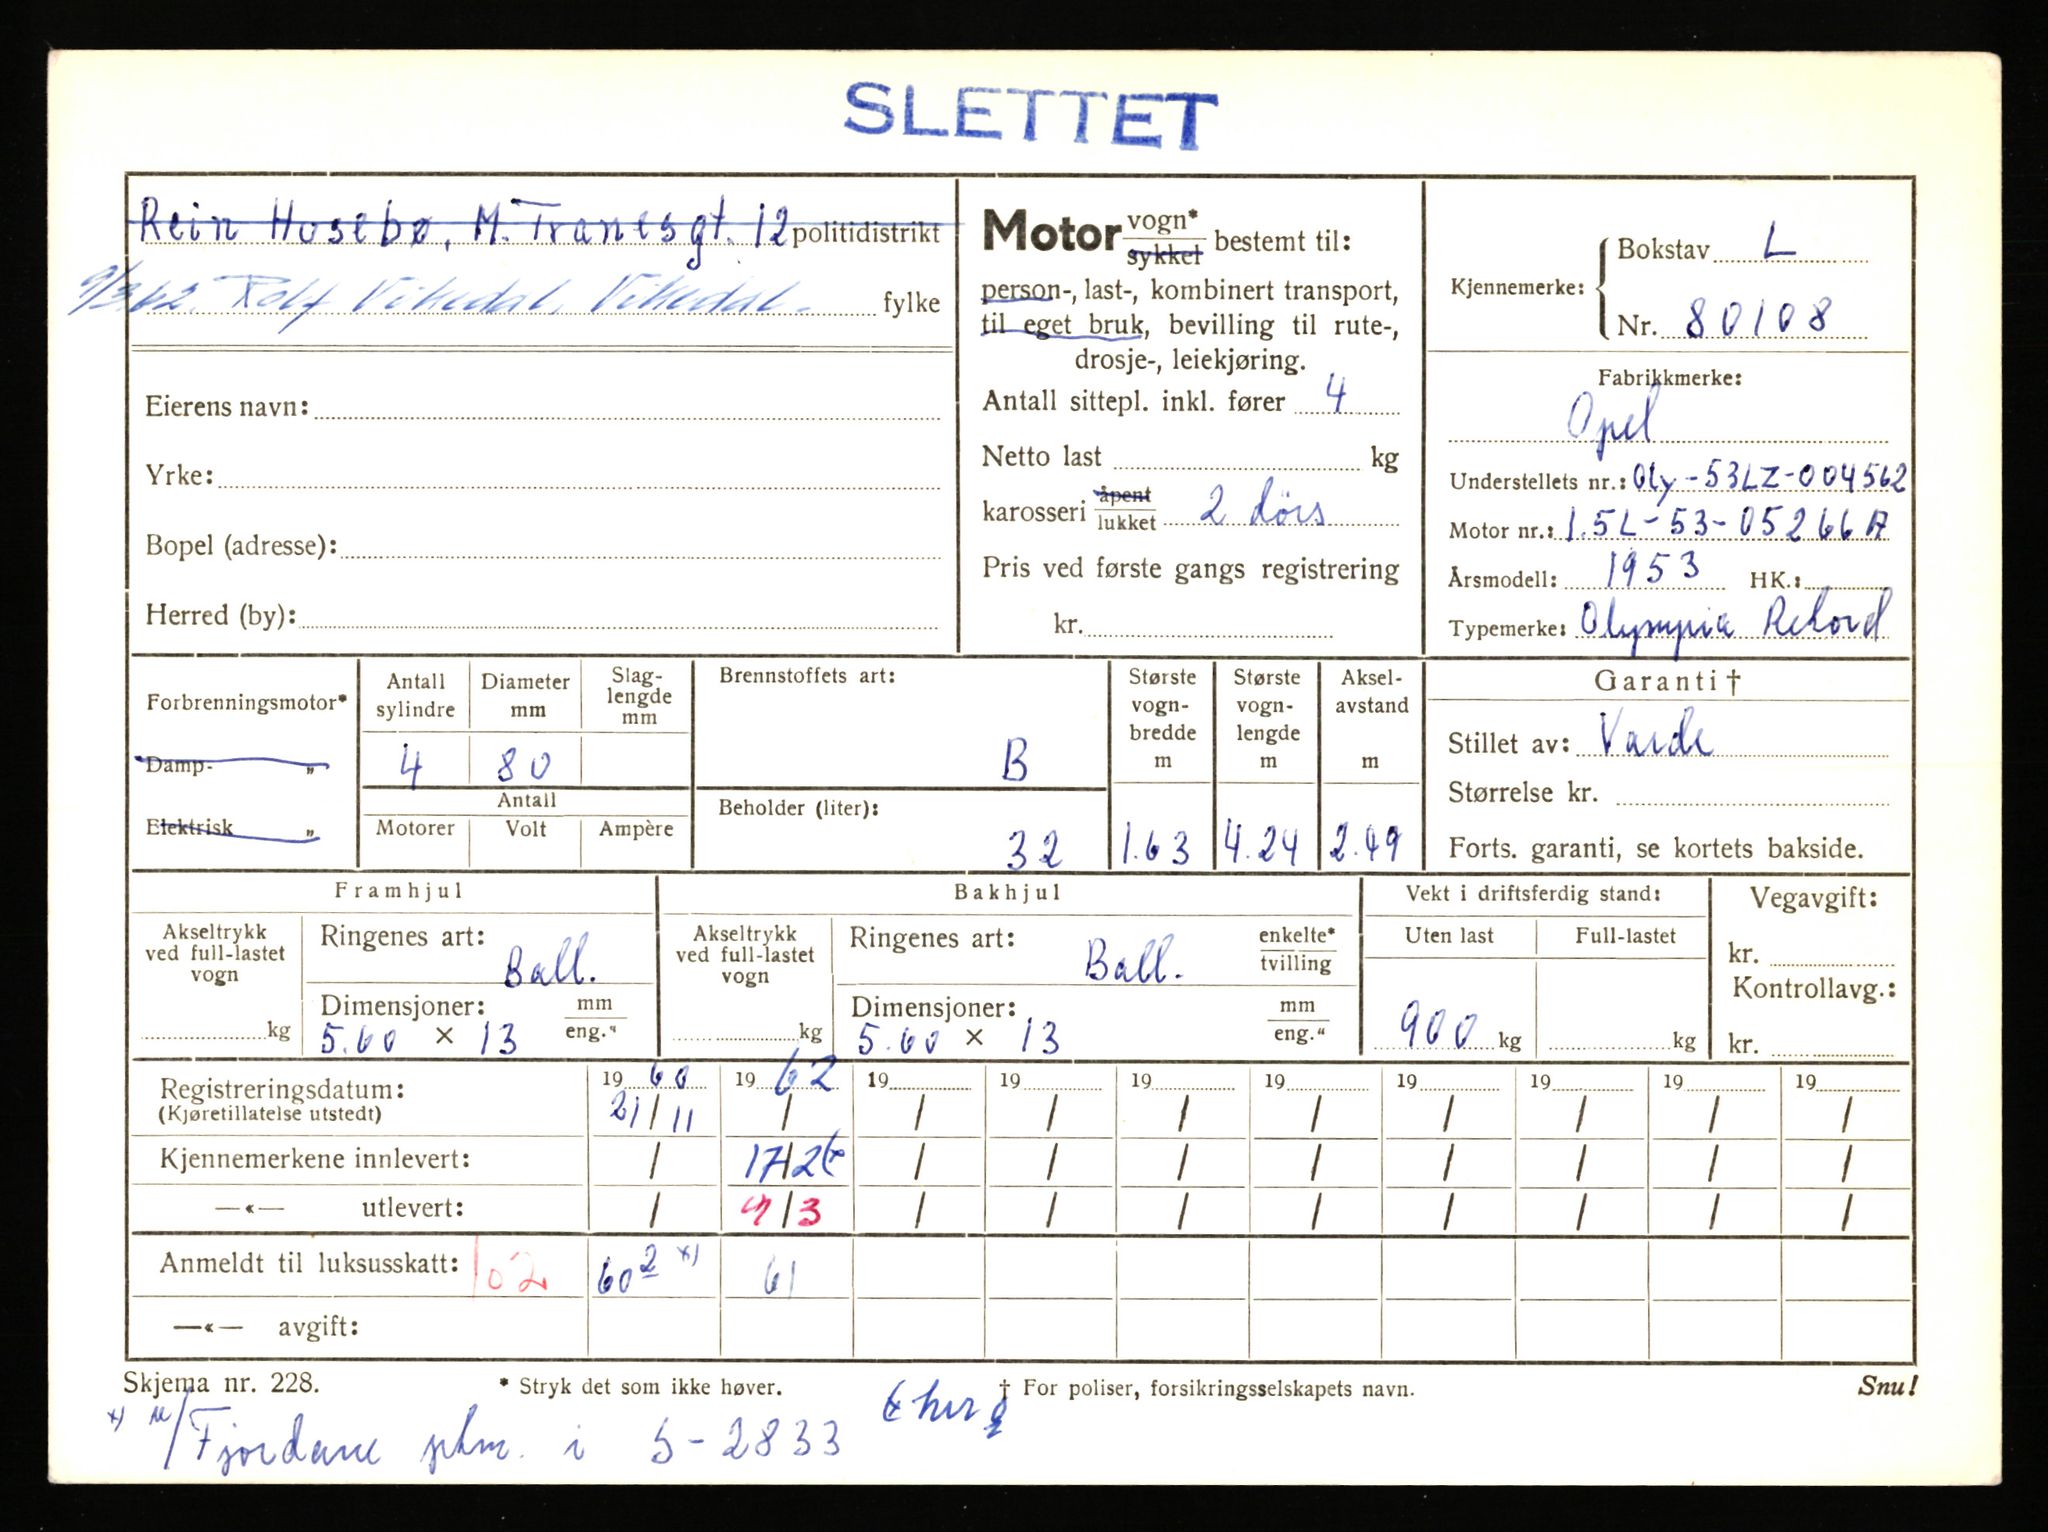 SLETTET
Rein Husebø, M. Tranesgt. 12 politidistrikt
9/3 62. Rolf Vikedal, Vikedal. fylke
Eierens navn:
Yrke:
Bopel (adresse):
Herred (by):
Motor vogn* sykkel bestemt til:
person-, last-, kombinert transport,
til eget bruk, bevilling til rute-,
drosje-, leiekjøring.
Antall sittepl. inkl. fører 4
Netto last kg
karosseri åpent lukket 2 dörs
Pris ved første gangs registrering
kr.
Kjennemerke: Bokstav L
Nr. 80108
Fabrikkmerke:
Opel
Understellets nr.: Oly-53LZ-004562
Motor nr.: 1.5L-53-05266A
Årsmodell: 1953 HK.:
Typemerke: Olympia Rekord
Forbrenningsmotor*
Damp- „
Elektrisk „
Antall sylindre Diameter mm Slag-lengde mm
4 80
Antall
Motorer Volt Ampère
Brennstoffets art:
B
Beholder (liter):
32
Største vogn-bredde m
1.63
Største vogn-lengde m
4.24
Aksel-avstand m
2.49
Garanti †
Stillet av: Varde
Størrelse kr.
Forts. garanti, se kortets bakside.
Framhjul
Akseltrykk ved full-lastet vogn
kg
Ringenes art:
Ball.
Dimensjoner: mm eng."
5.60 × 13
Bakhjul
Akseltrykk ved full-lastet vogn
kg
Ringenes art: enkelte* tvilling
Ball.
Dimensjoner: mm eng."
5.60 × 13
Vekt i driftsferdig stand:
Uten last Full-lastet
900 kg kg
Vegavgift:
kr.
Kontrollavg.:
kr.
Registreringsdatum: 19 60 19 62 19 19 19 19 19 19 19 19
(Kjøretillatelse utstedt) 21/11 / / / / / / / / /
Kjennemerkene innlevert: / 17/2 / / / / / / / /
—«— utlevert: / 9/3 / / / / / / / /
Anmeldt til luksusskatt: 62 60 2 x) 61
—«— avgift:
Skjema nr. 228. * Stryk det som ikke høver. † For poliser, forsikringsselskapets navn. Snu!
x) Fjordane i S-2833